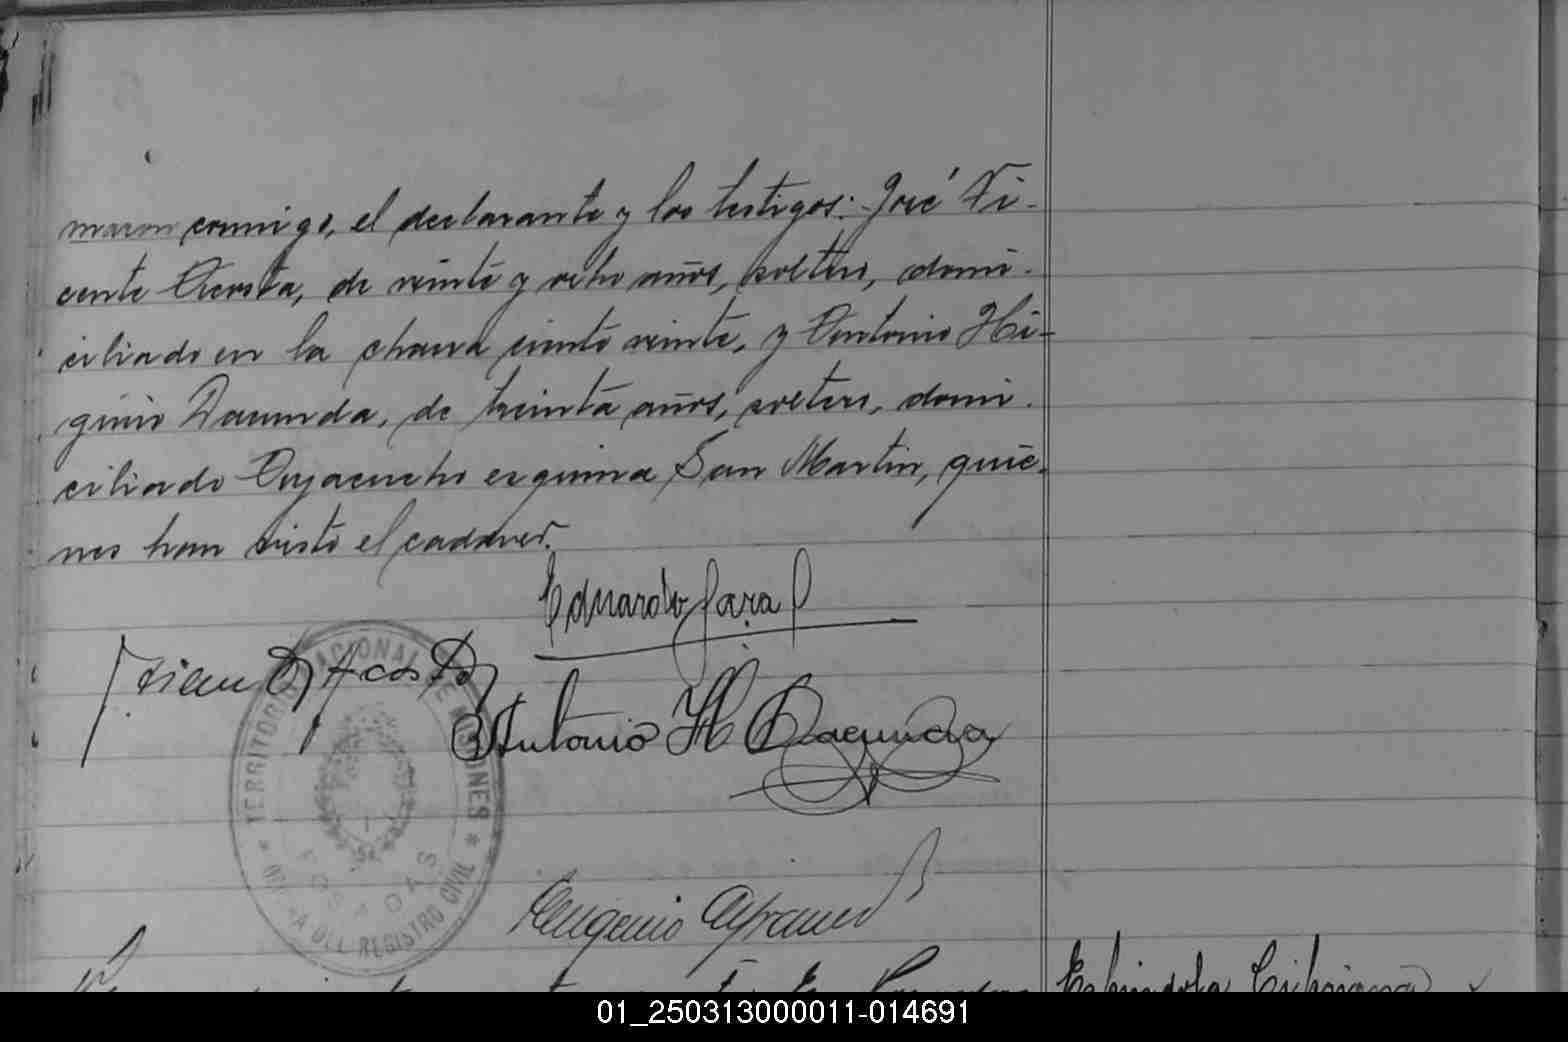 maron conmigo, el declarante y los testigos: José Vi-
cente Acosta, de veinte y ocho años, soltero, domi-
ciliado en la chacra ciento veinte, y Antonio Hi-
ginio Dacunda, de treinta años, soltero, domi-
ciliado Ayacucho esquina San Martin, quie-
nes han visto el cadaver.
Eduardo Jara
Acosta
Antonio H Dacunda
TERRITORIO NACIONAL DE MISIONES
DEL REGISTRO CIVIL
POSADAS
Eugenio
Espindola Cipriana
01_250313000011-014691